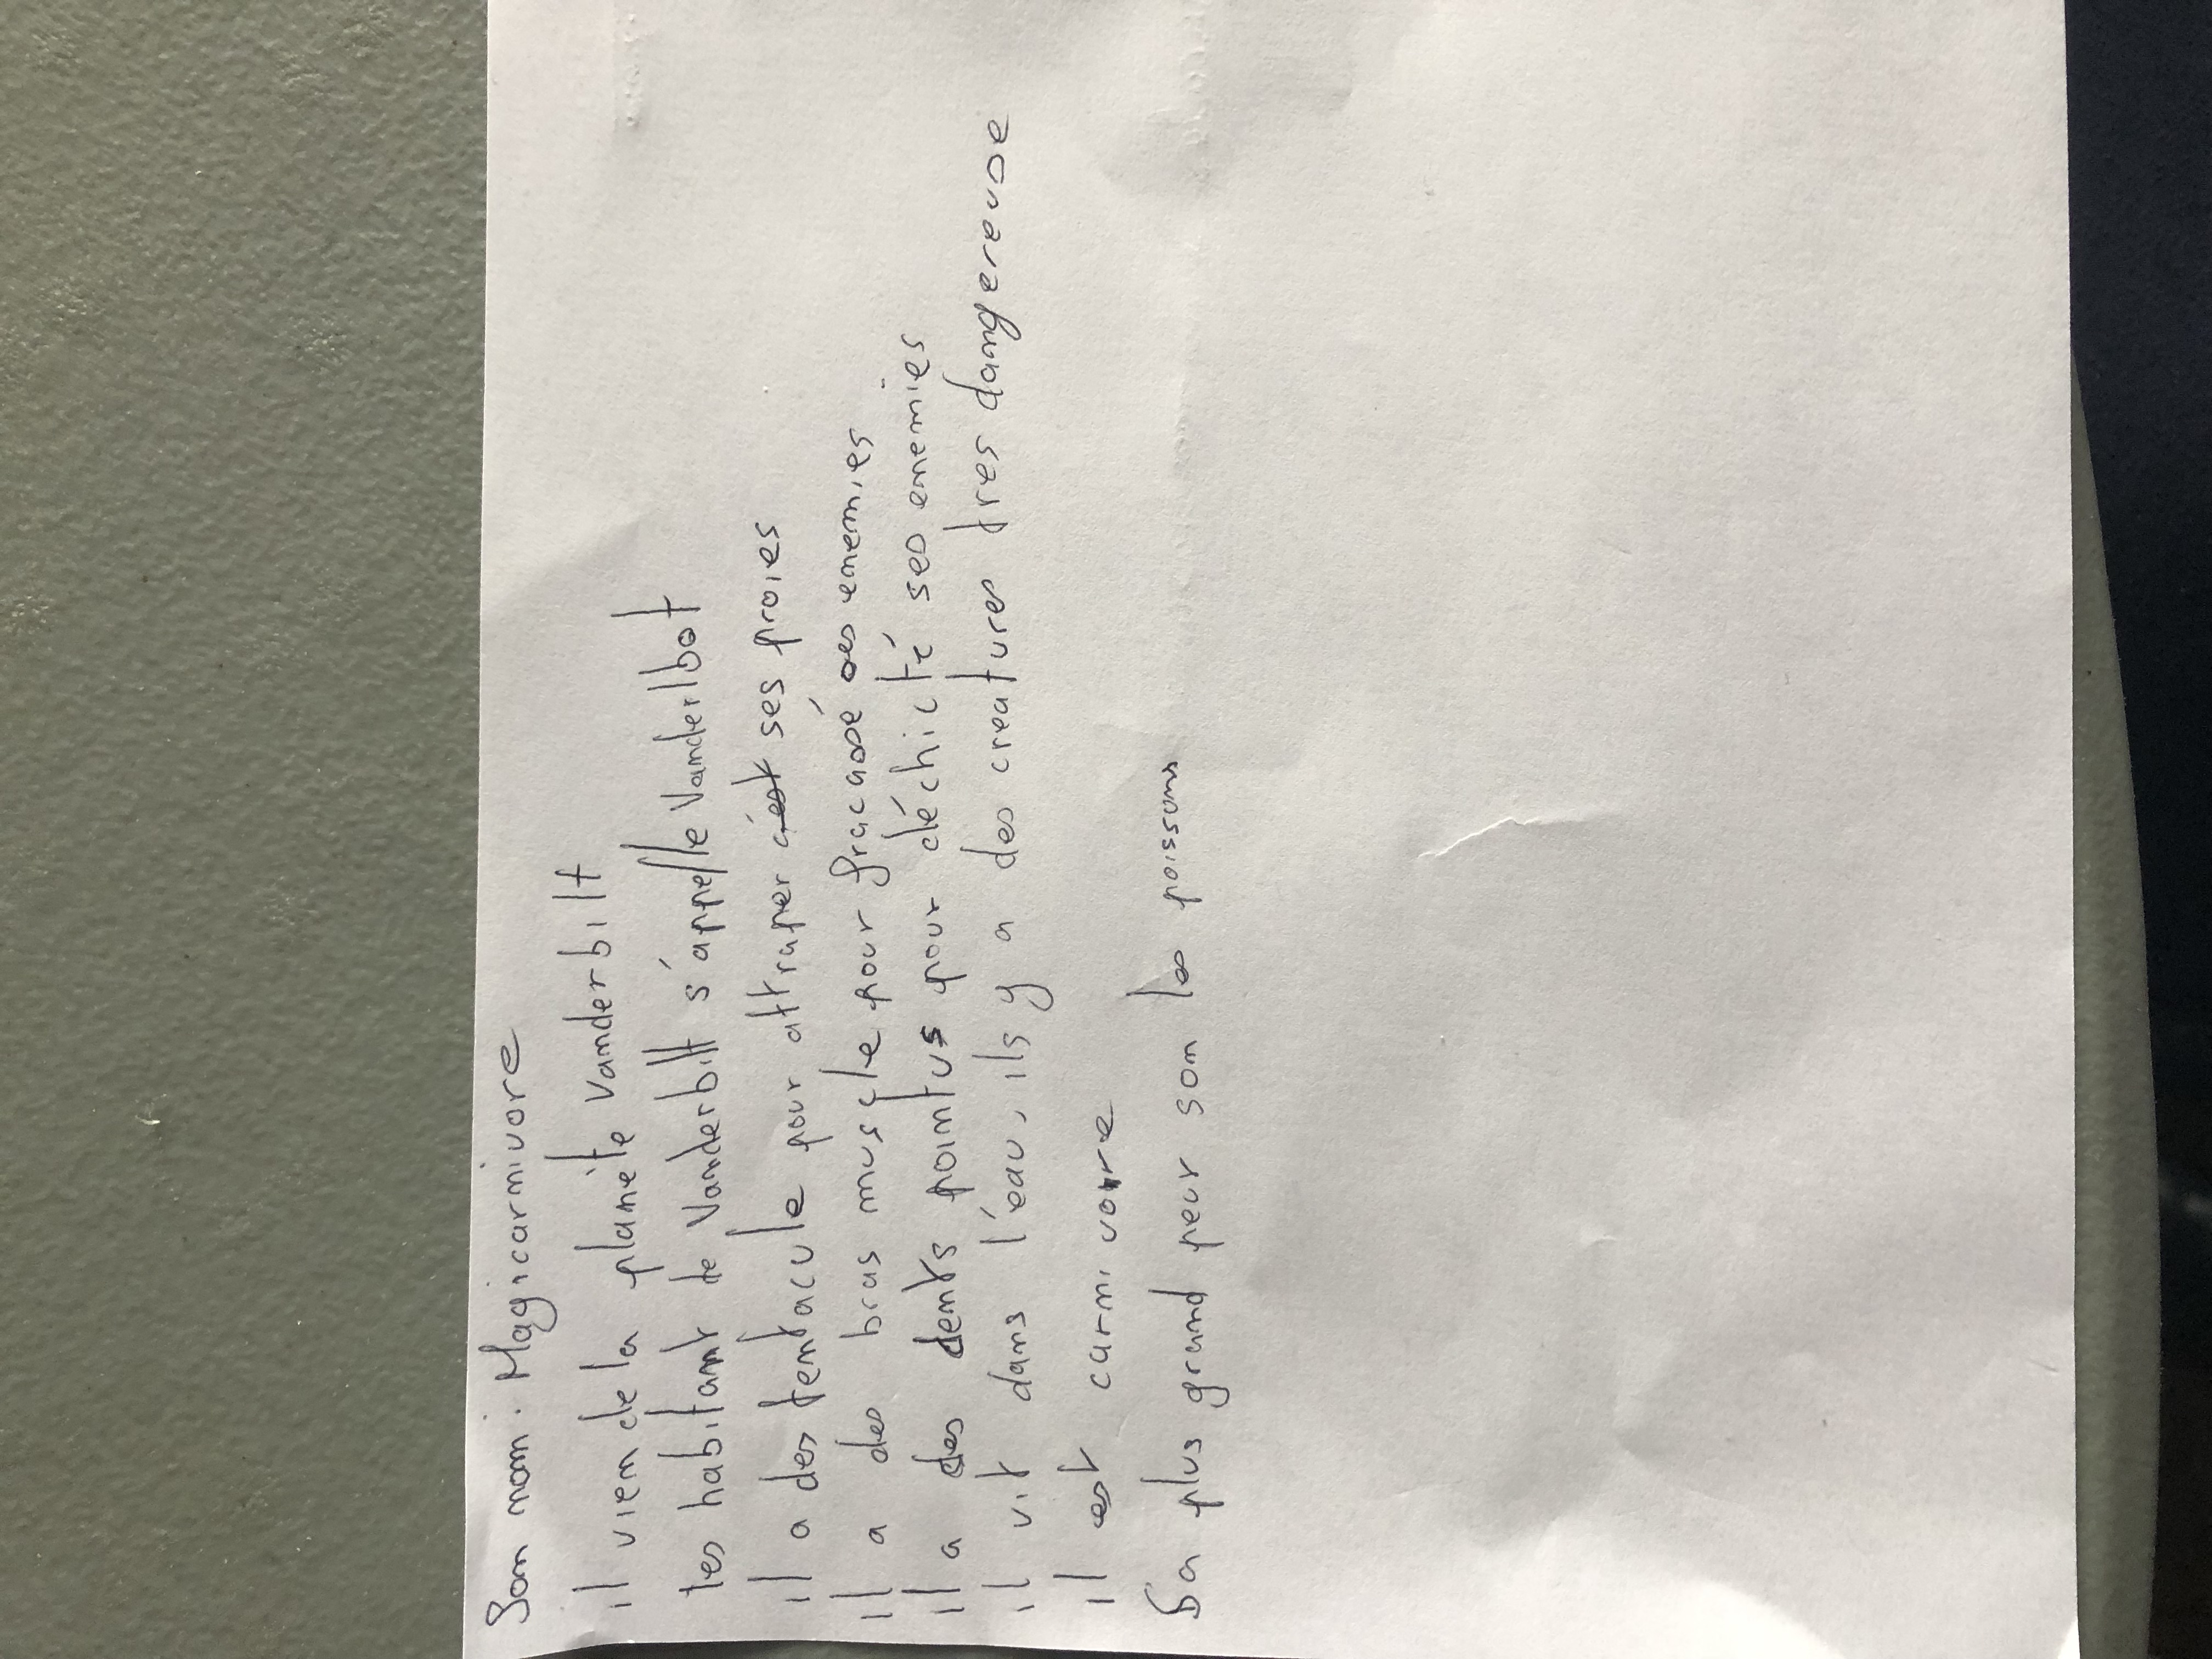 Son nom : Magicarnivore
il vien de la planète Vanderbilt
les habitant de Vanderbilt s'appelle Vanderlbot
il a des tentacule pour attraper ses proies
il a des bras muscle pour fracasé ses enemies
il a des dents pointus pour déchicté ses enemies
il vit dans l'eau, ils y a des creatures tres dangereuse
il est carnivore
Sa plus grand peur son les poissons